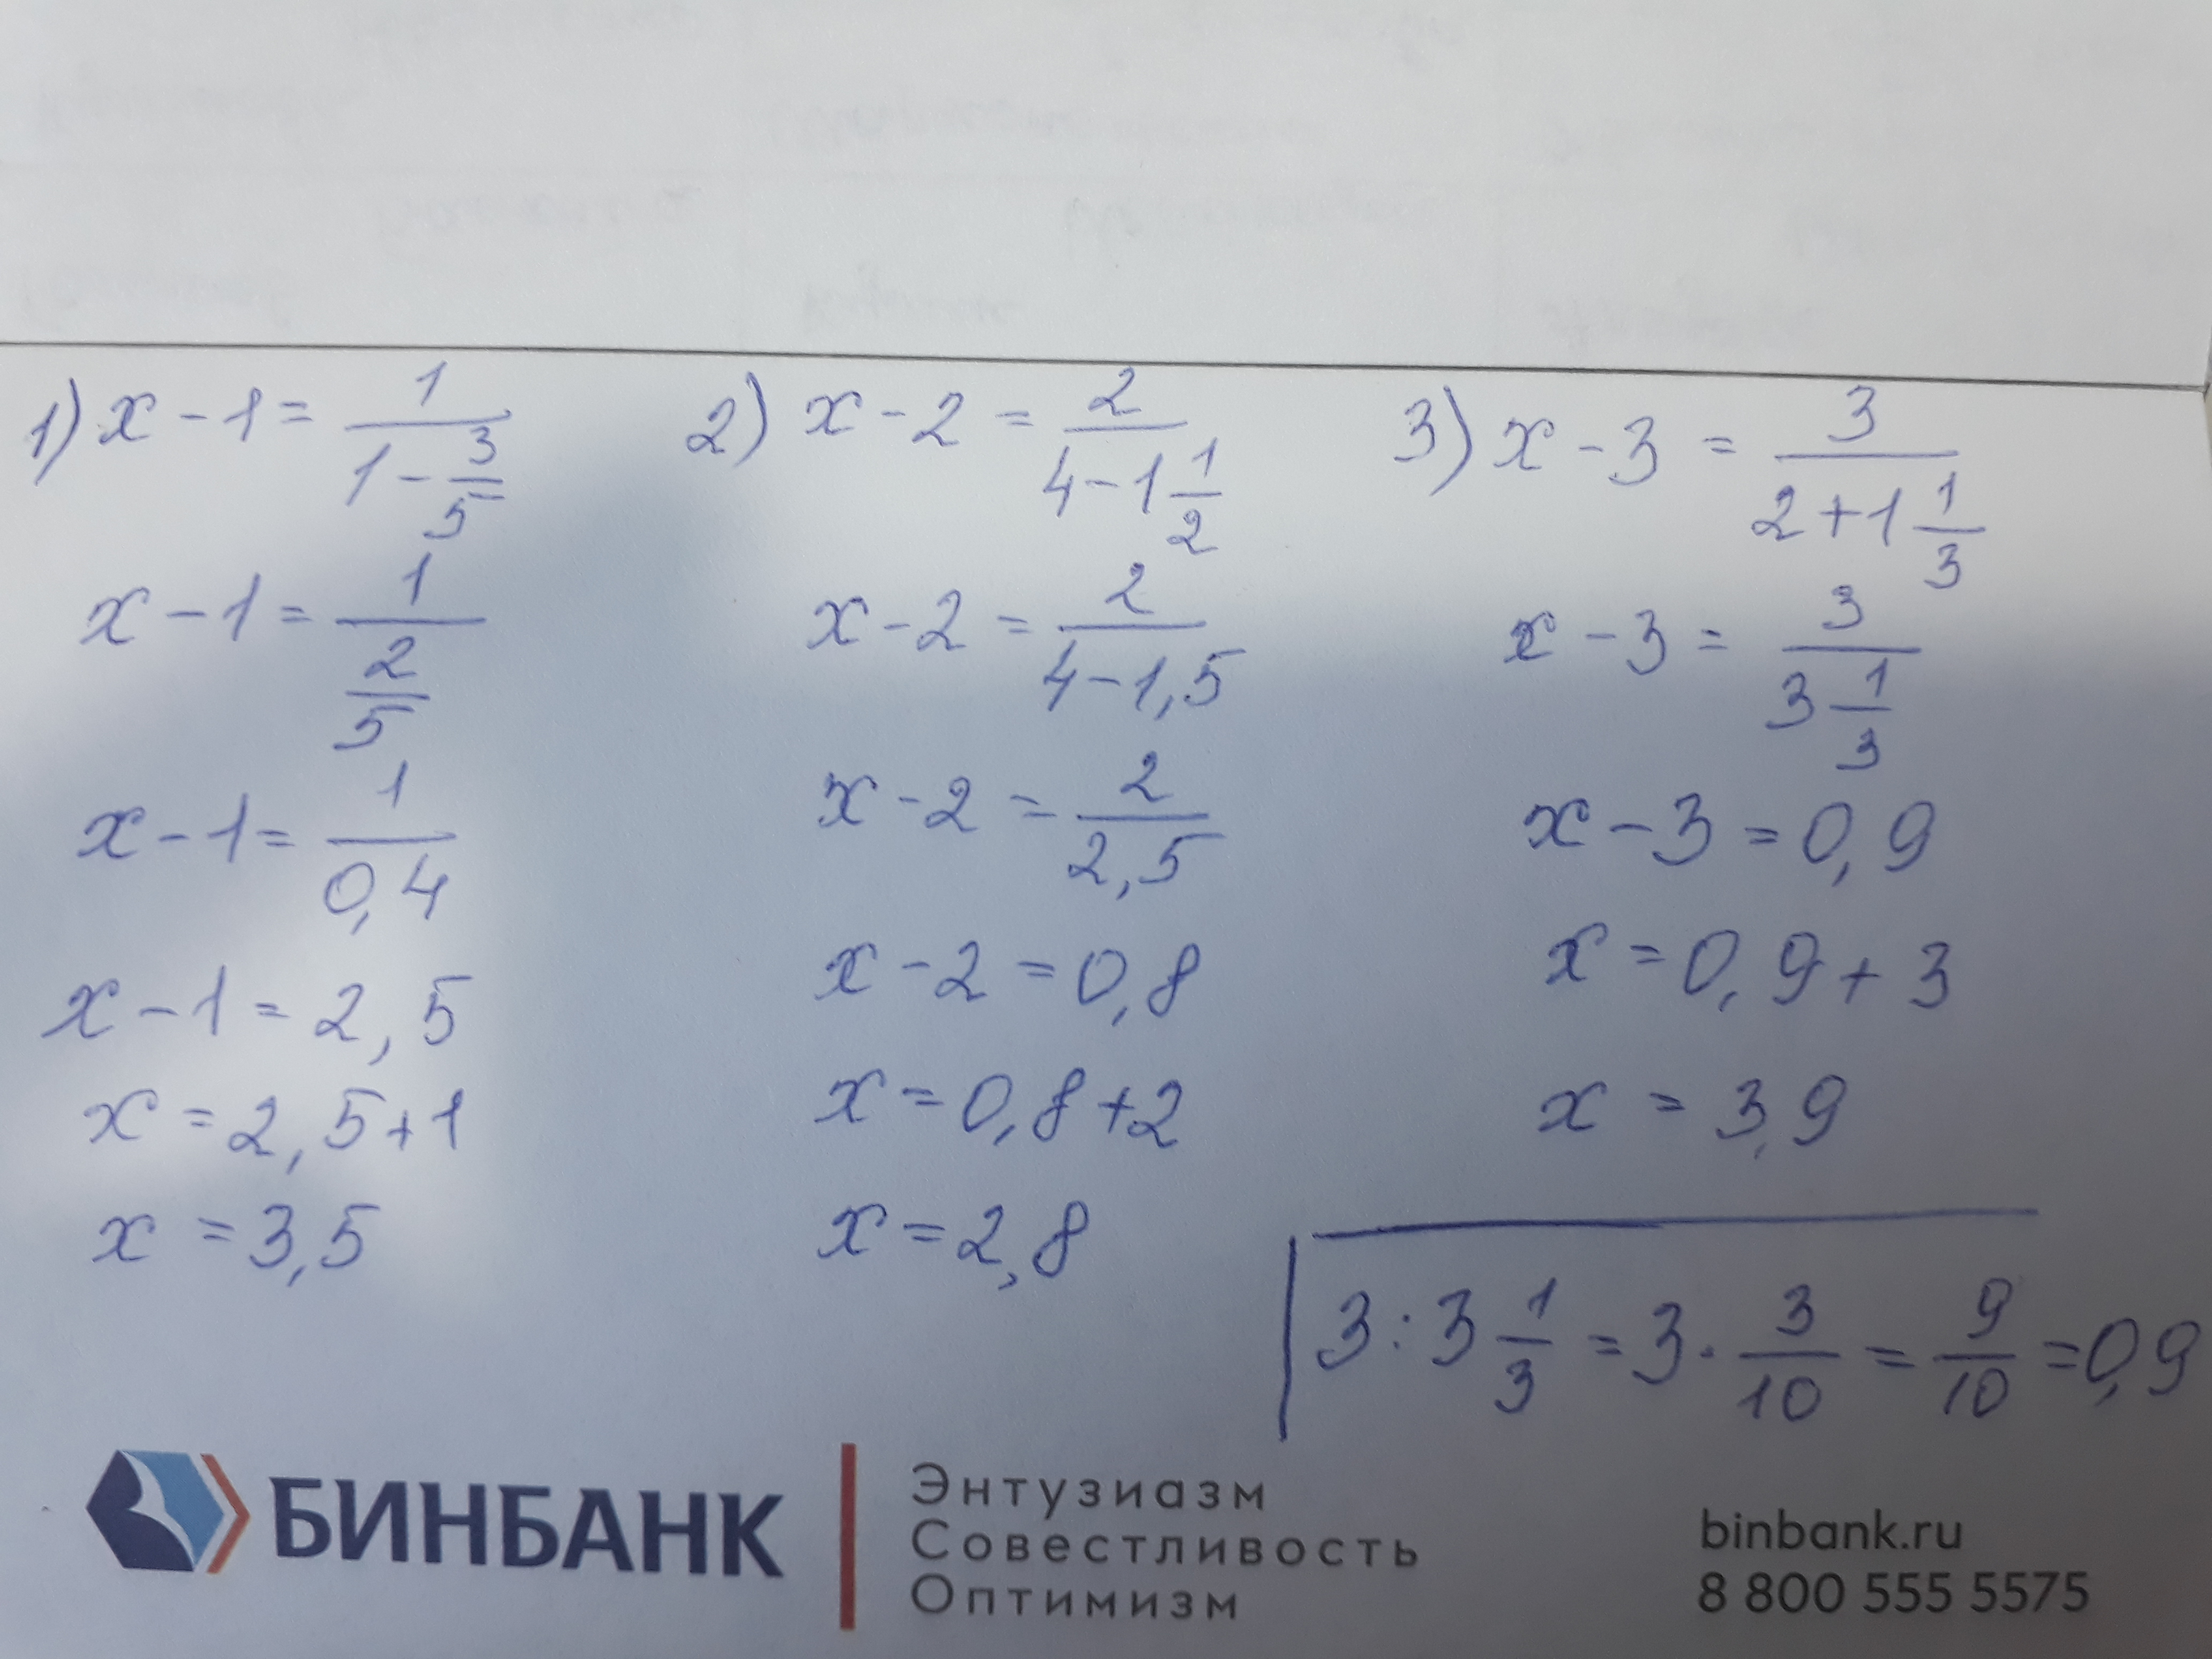 1) x - 1 = 1/(1 - 3/5)
x - 1 = 1/(2/5)
x - 1 = 1/0,4
x - 1 = 2,5
x = 2,5 + 1
x = 3,5
2) x - 2 = 2/(4 - 1 1/2)
x - 2 = 2/(4 - 1,5)
x - 2 = 2/2,5
x - 2 = 0,8
x = 0,8 + 2
x = 2,8
3) x - 3 = 3/(2 + 1 1/3)
x - 3 = 3/(3 1/3)
x - 3 = 0,9
x = 0,9 + 3
x = 3,9
3 : 3 1/3 = 3 · 3/10 = 9/10 = 0,9
БИНБАНК
Энтузиазм
Совестливость
Оптимизм
binbank.ru
8 800 555 5575